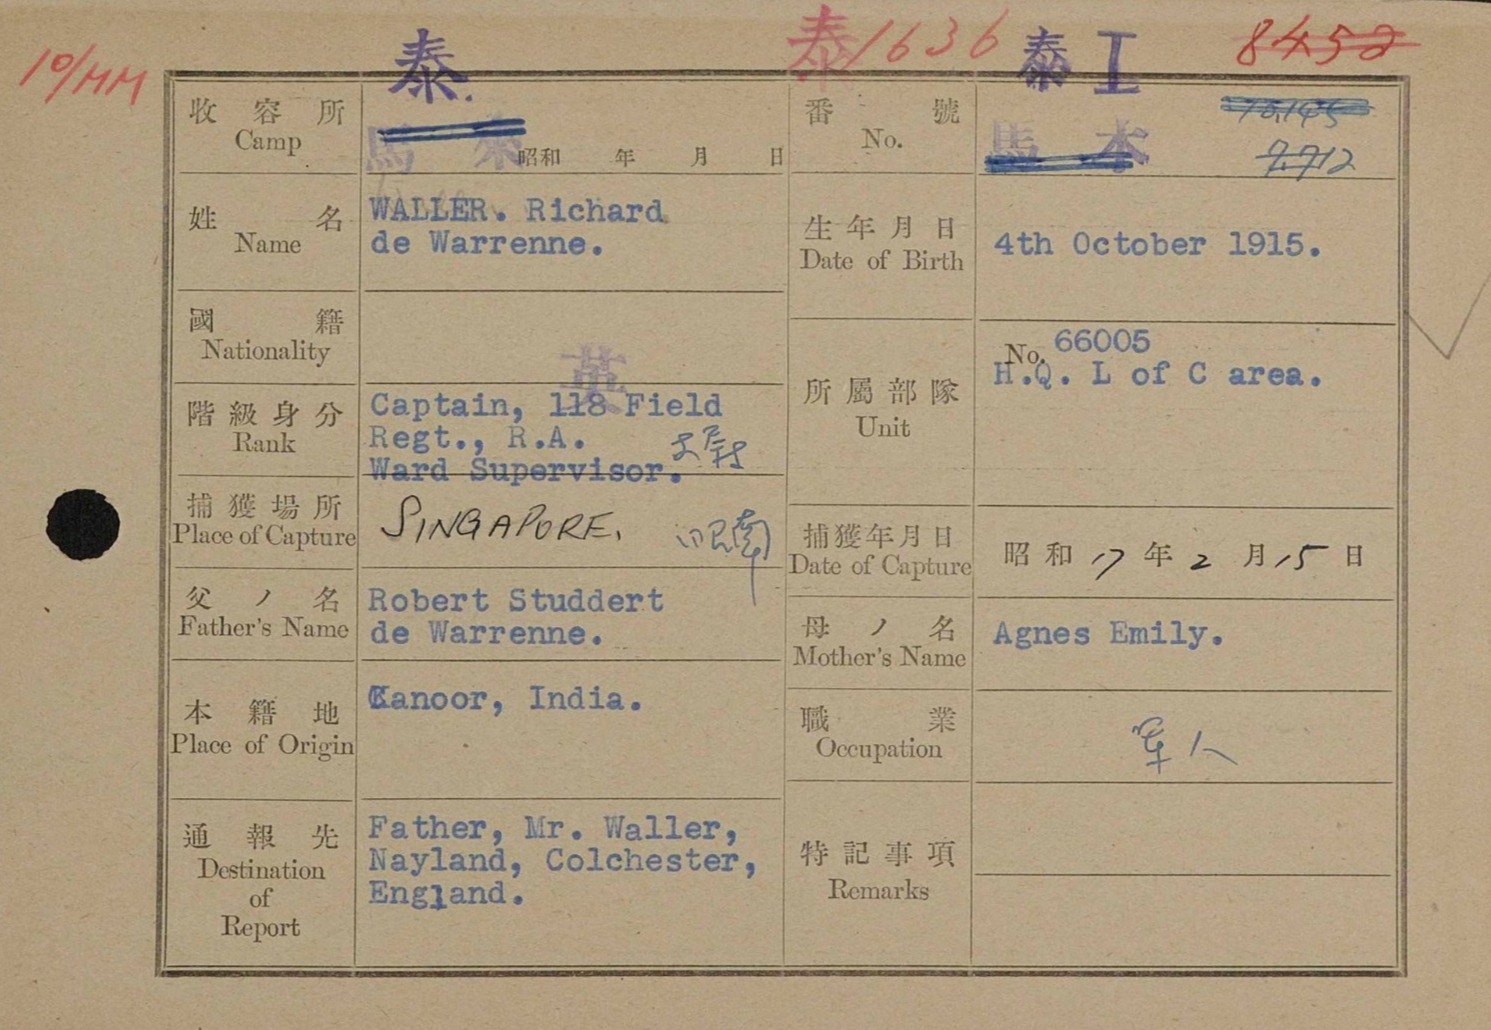 10/MM
泰
泰 1636
泰 工
8452
收容所
Camp
馬来
昭和 年 月 日
番號
No.
馬来
10,145
7,712
姓名
Name
WALLER. Richard
de Warrenne.
生年月日
Date of Birth
4th October 1915.
國籍
Nationality
英
階級身分
Rank
Captain, 118 Field
Regt., R.A.
Ward Supervisor.
大尉
所屬部隊
Unit
No. 66005
H.Q. L of C area.
捕獲場所
Place of Capture
SINGAPORE.
昭南
捕獲年月日
Date of Capture
昭和 17 年 2 月 15 日
父ノ名
Father's Name
Robert Studdert
de Warrenne.
母ノ名
Mother's Name
Agnes Emily.
本籍地
Place of Origin
Kanoor, India.
職業
Occupation
軍人
通報先
Destination
of
Report
Father, Mr. Waller,
Nayland, Colchester,
England.
特記事項
Remarks